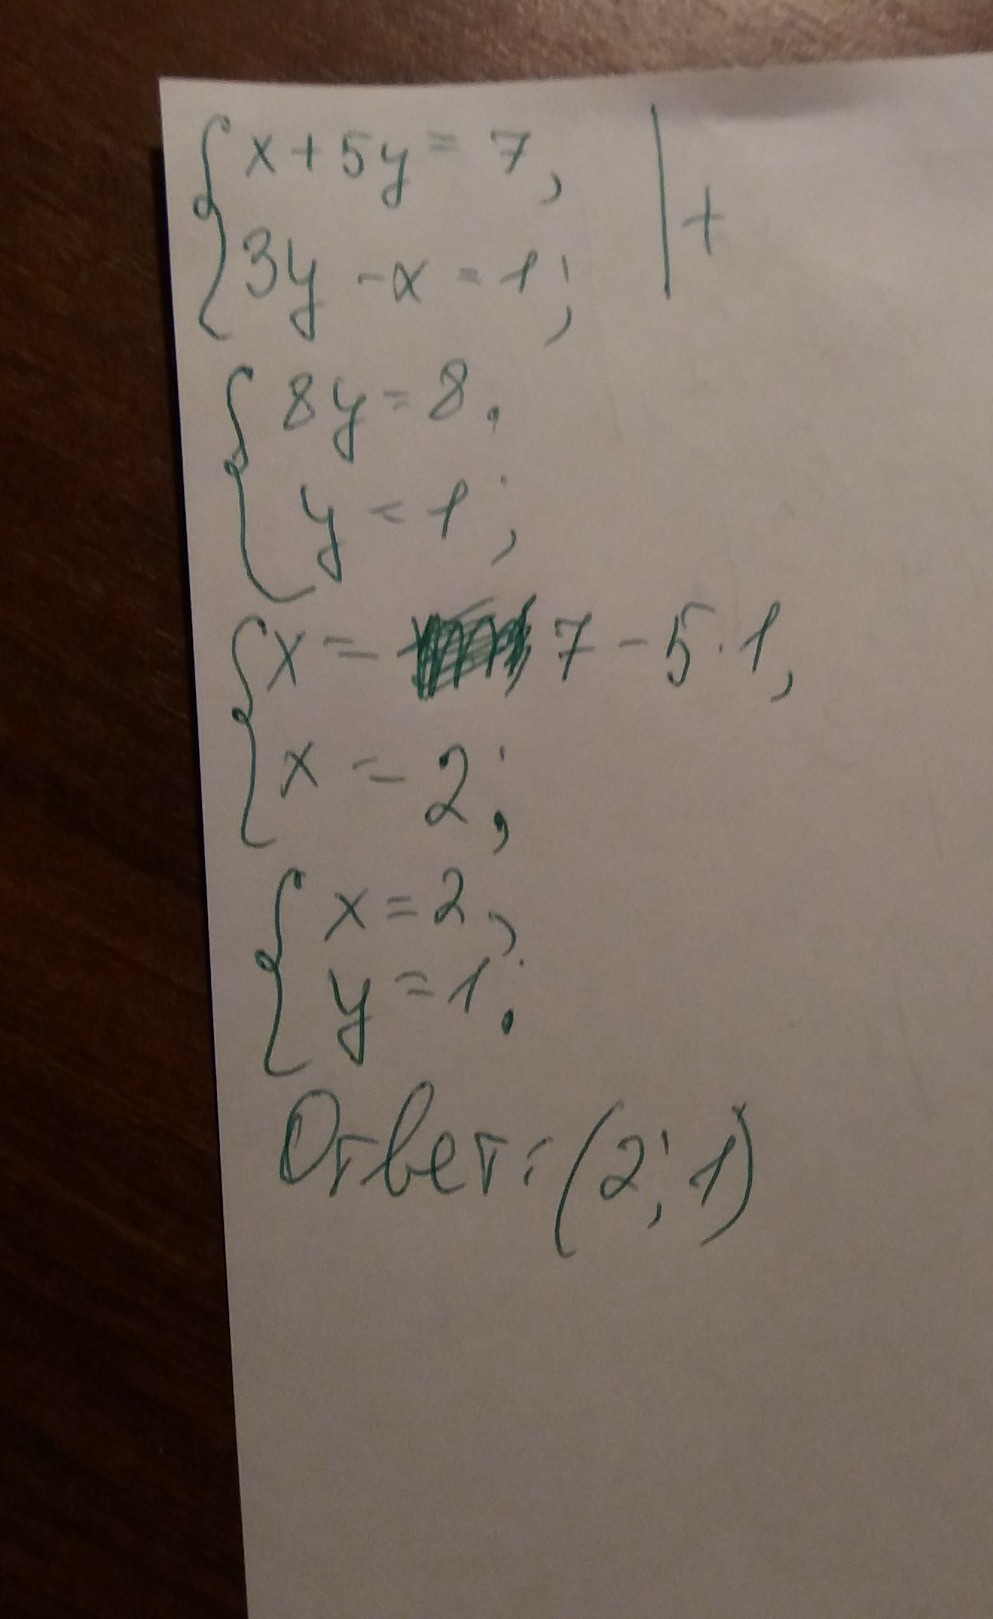 x + 5y = 7, | +
3y - x = 1;
8y = 8.
y = 1;
x = 7 - 5 · 1,
x = 2;
x = 2,
y = 1.
Ответ: (2; 1)